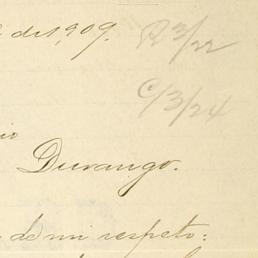 de 1909. R 3/22
C/3/24
Durango.
de mi respeto: